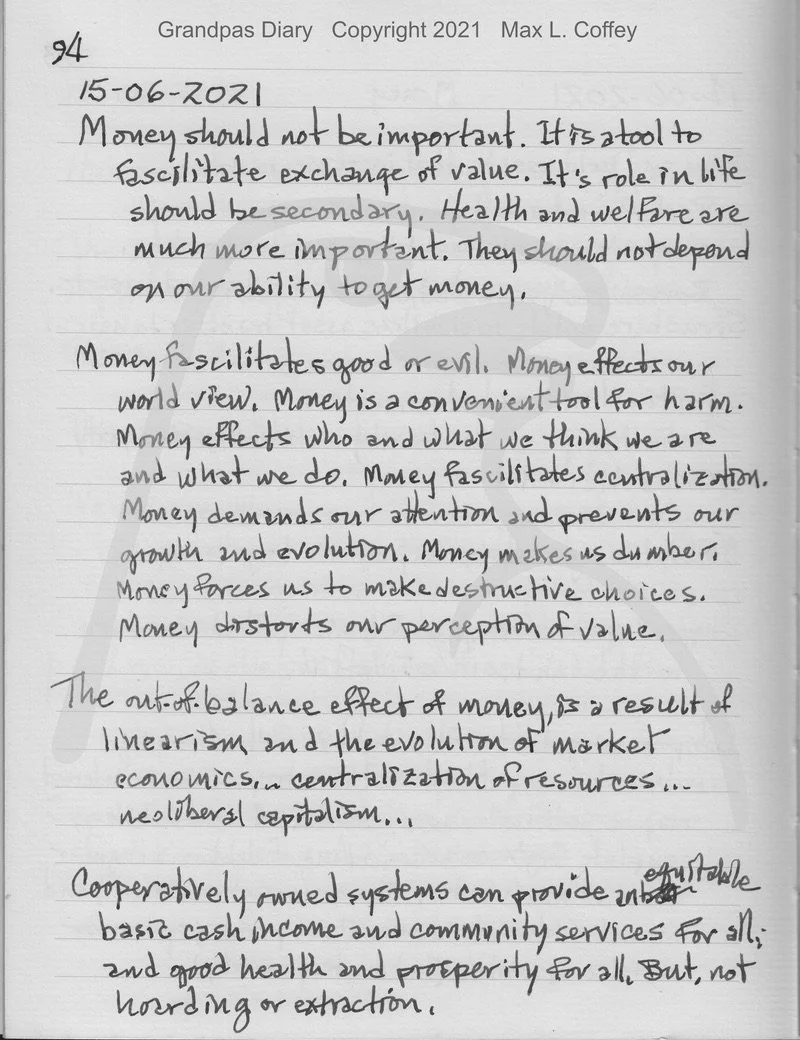 Grandpas Diary Copyright 2021 Max L. Coffey
94
15-06-2021
Money should not be important. It is a tool to
fascilitate exchange of value. It's role in life
should be secondary. Health and welfare are
much more important. They should not depend
on our ability to get money.
Money fascilitates good or evil. Money effects our
world view. Money is a convenient tool for harm.
Money effects who and what we think we are
and what we do. Money fascilitates centralization.
Money demands our attention and prevents our
growth and evolution. Money makes us dumber.
Money forces us to make destructive choices.
Money distorts our perception of value.
The out-of-balance effect of money, is a result of
linearism and the evolution of market
economics... centralization of resources...
neoliberal capitalism...
Cooperatively owned systems can provide an equitable
basic cash income and community services for all;
and good health and prosperity for all. But, not
hoarding or extraction.